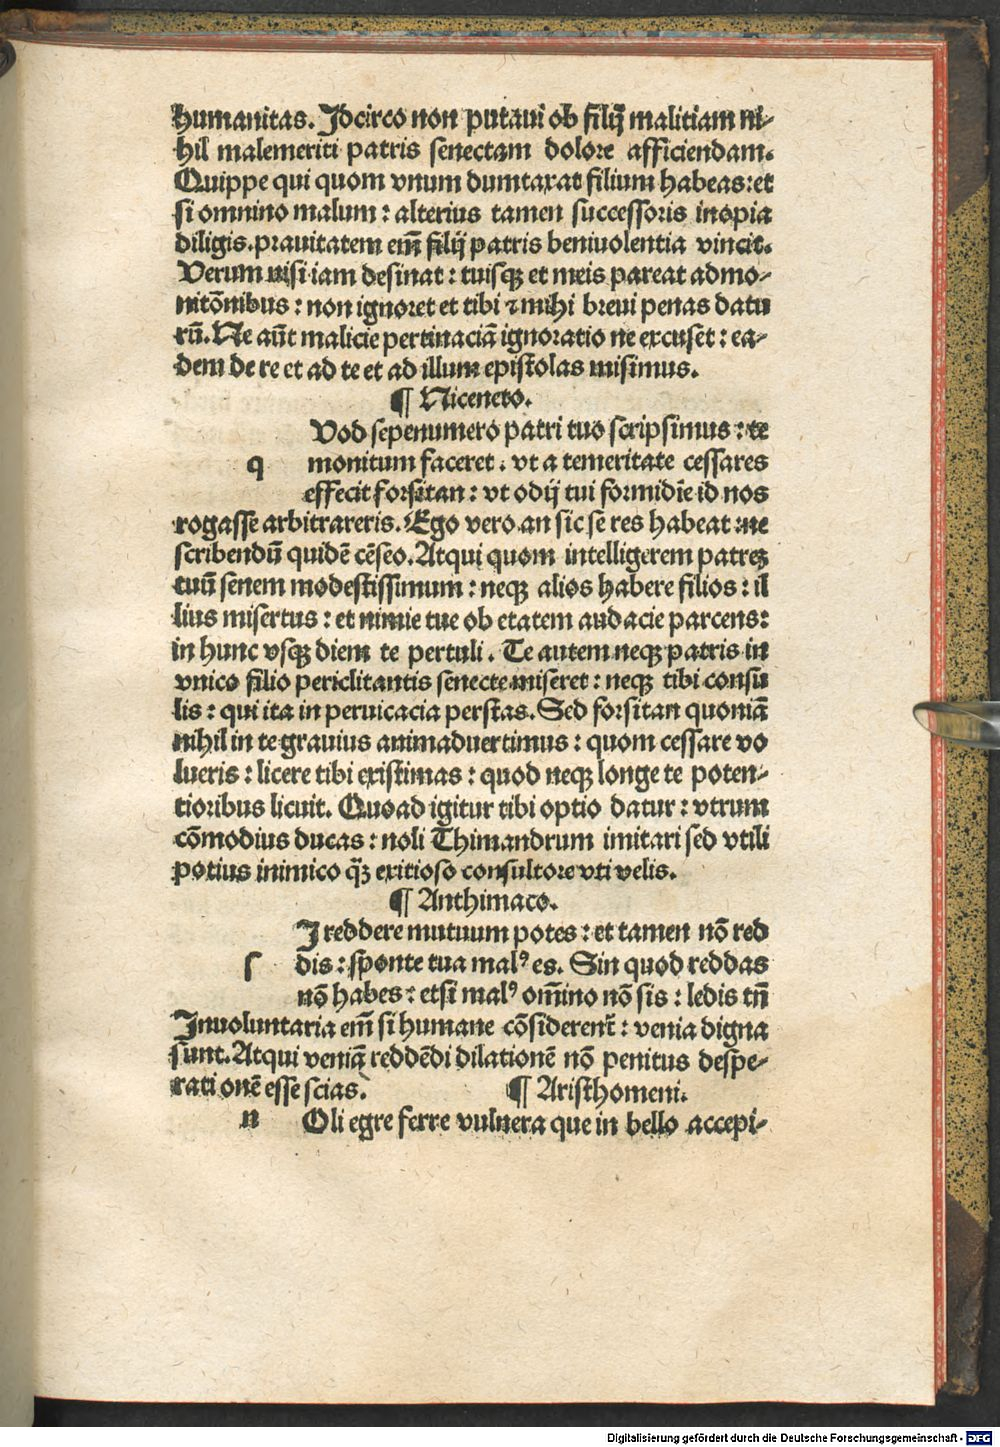 humanitas. Idcirco non putaui ob filij malitiam ni-
hil malemeriti patris senectam dolore afficiendam.
Quippe qui quom vnum dumtaxat filium habeas: et
si omnino malum: alterius tamen successoris inopia
diligis. prauitatem em̄ filij patris beniuolentia vincit.
Verum nisi iam desinat: tuisqȝ et meis pareat admo-
nitōnibus: non ignoret et tibi ⁊ mihi breui penas datu
rū. Ne aūt malicie pertinaciā ignoratio ne excuset: ea-
dem de re et ad te et ad illum epistolas misimus.
¶ Niceneto.
Vod sepenumero patri tuo scripsimus: te
q monitum faceret. vt a temeritate cessares
effecit forsitan: vt odij tui formidīe id nos
rogasse arbitrareris. Ego vero an sic se res habeat: ne
scribendū quidē cēseo. Atqui quom intelligerem patreȝ
tuū senem modestissimum: neqȝ alios habere filios: il
lius misertus: et nimie tue ob etatem audacie parcens:
in hunc vsqȝ diem te pertuli. Te autem neqȝ patris in
vnico filio periclitantis senecte miseret: neqȝ tibi consu
lis: qui ita in peruicacia perstas. Sed forsitan quoniā
nihil in te grauius animaduertimus: quom cessare vo
lueris: licere tibi existimas: quod neqȝ longe te poten-
tioribus licuit. Quoad igitur tibi optio datur: vtrum
cōmodius ducas: noli Thimandrum imitari sed vtili
potius inimico q̄ȝ exitioso consultore vti velis.
¶ Anthimaco.
I reddere mutuum potes: et tamen nō red
ſ dis: sponte tua malꝰ es. Sin quod reddas
nō habes: etsi malꝰ om̄ino nō sis: ledis tn̄
Inuoluntaria em̄ si humane cōsiderent̄: venia digna
sunt. Atqui veniā reddēdi dilationē nō penitus despe-
rationē esse scias. ¶ Aristhomeni.
n Oli egre ferre vulnera que in bello accepi-
Digitalisierung gefördert durch die Deutsche Forschungsgemeinschaft - DFG